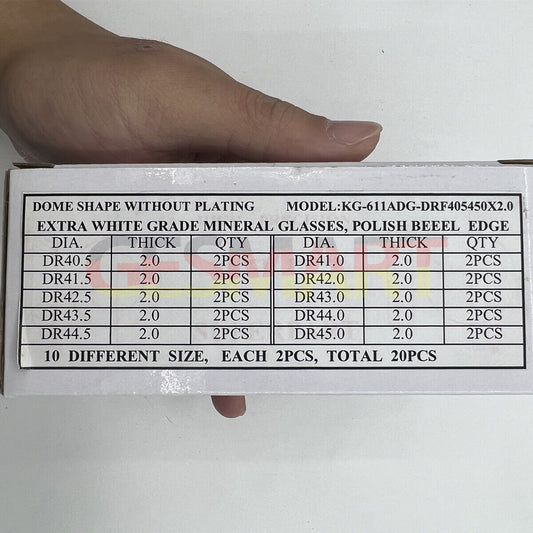 DOME SHAPE WITHOUT PLATING MODEL:KG-611ADG-DRF405450X2.0
EXTRA WHITE GRADE MINERAL GLASSES, POLISH BEEEL EDGE
DIA. THICK QTY DIA. THICK QTY
DR40.5 2.0 2PCS DR41.0 2.0 2PCS
DR41.5 2.0 2PCS DR42.0 2.0 2PCS
DR42.5 2.0 2PCS DR43.0 2.0 2PCS
DR43.5 2.0 2PCS DR44.0 2.0 2PCS
DR44.5 2.0 2PCS DR45.0 2.0 2PCS
10 DIFFERENT SIZE, EACH 2PCS, TOTAL 20PCS
GESMART